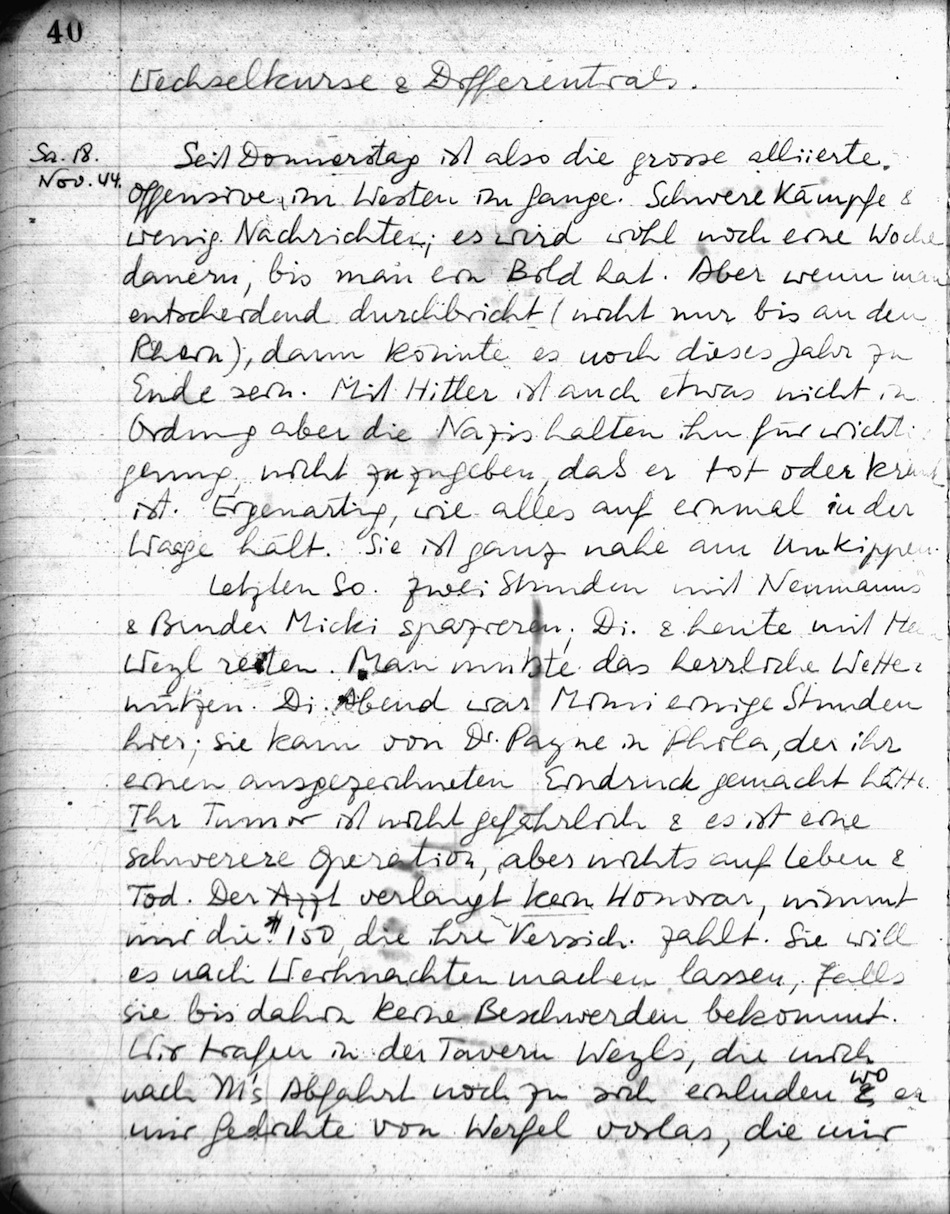 40
Wechselkurse & Differentials.
Sa. 18.
Nov. 44.
Seit Donnerstag ist also die grosse alliierte
Offensive im Westen im Gange. Schwere Kämpfe &
wenig Nachrichten; es wird wohl noch eine Woche
dauern, bis man ein Bild hat. Aber wenn man
entscheidend durchbricht (nicht nur bis an den
Rhein), dann könnte es noch dieses Jahr zu
Ende sein. Mit Hitler ist auch etwas nicht in
Ordnung aber die Nazis halten ihn für wichti
genug, nicht zuzugeben, daß er tot oder krank
ist. Eigenartig, wie alles auf einmal in der
Waage hält. Sie ist ganz nahe am Umkippen.
Letzten So. zwei Stunden mit Neumanns
& Bruder Micki spazieren; Di. & heute mit
Weyl reiten. Man mußte das herrliche Wetter
nützen. Di. Abend war Mimi einige Stunden
hier; sie kam von Dr. Payne in Phila, der ihr
einen ausgezeichneten Eindruck gemacht hatte.
Ihr Tumor ist nicht gefährlich & es ist eine
schwerere Operation, aber nichts auf Leben &
Tod. Der Arzt verlangt kein Honorar, nimmt
nur die $150, die ihre Versich. zahlt. Sie will
es nach Weihnachten machen lassen, falls
sie bis dahin keine Beschwerden bekommt.
Wir trafen in der Tavern Weyls, die mich
nach M's Abfahrt noch zu sich einluden wo er
mir Gedichte von Werfel vorlas, die mir